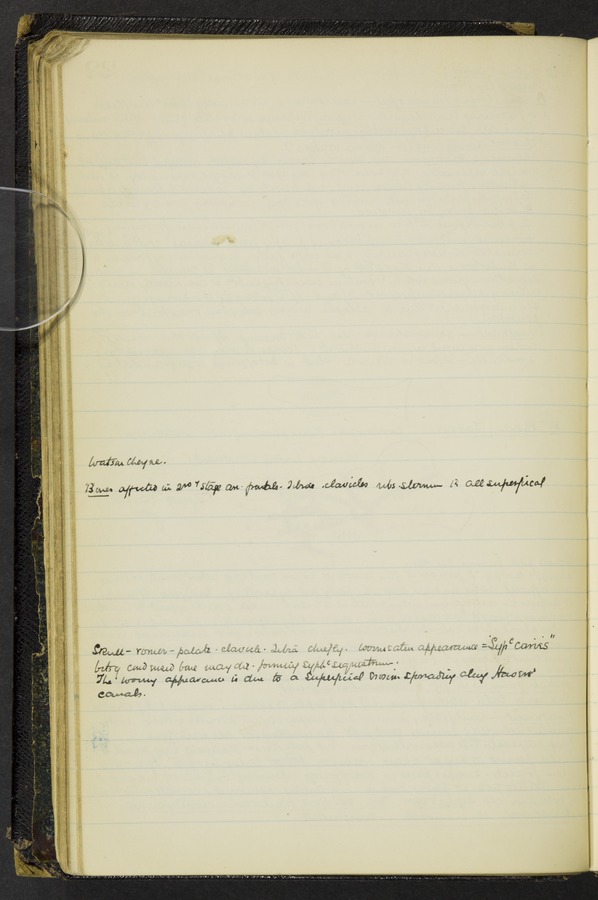 Watson Cheyne.
Bones affected in 2nd stage are frontals. Tibiae. clavicles ribs sternum i.e. all superficial
Skull - vomer - palate - clavicle. Tibia chiefly. Worm eaten appearance = "Syphc caries"
bits of condensed bone may die. forming syphc sequestrum.
The wormy appearance is due to a superficial erosion spreading along Haversn
canals.